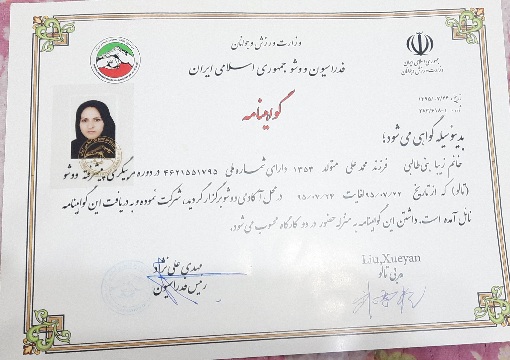 وزارت ورزش و جوانان
فدراسیون ووشو جمهوری اسلامی ایران
جمهوری اسلامی ایران
وزارت ورزش و جوانان
گواهینامه
تاریخ: ۱۳۹۵/۰۷/۲۴
بدینوسیله گواهی می شود؛
خانم زیبا بنی طالبی فرزند محمد علی متولد ۱۳۵۳ دارای شماره ملی ۴۶۲۱۵۵۱۷۹۵ در دوره مربیگری پیشرفته ووشو
(تالو) که از تاریخ ۹۵/۰۷/۲۲ لغایت ۹۵/۰۷/۲۴ در محل آکادمی ووشو برگزار گردید، شرکت نموده و به دریافت این گواهینامه
نائل آمده است. داشتن این گواهینامه به منزله حضور در دو کارگاه محسوب می شود.
Liu,Xueyan
مربی تالو
مهدی علی نژاد
رئیس فدراسیون